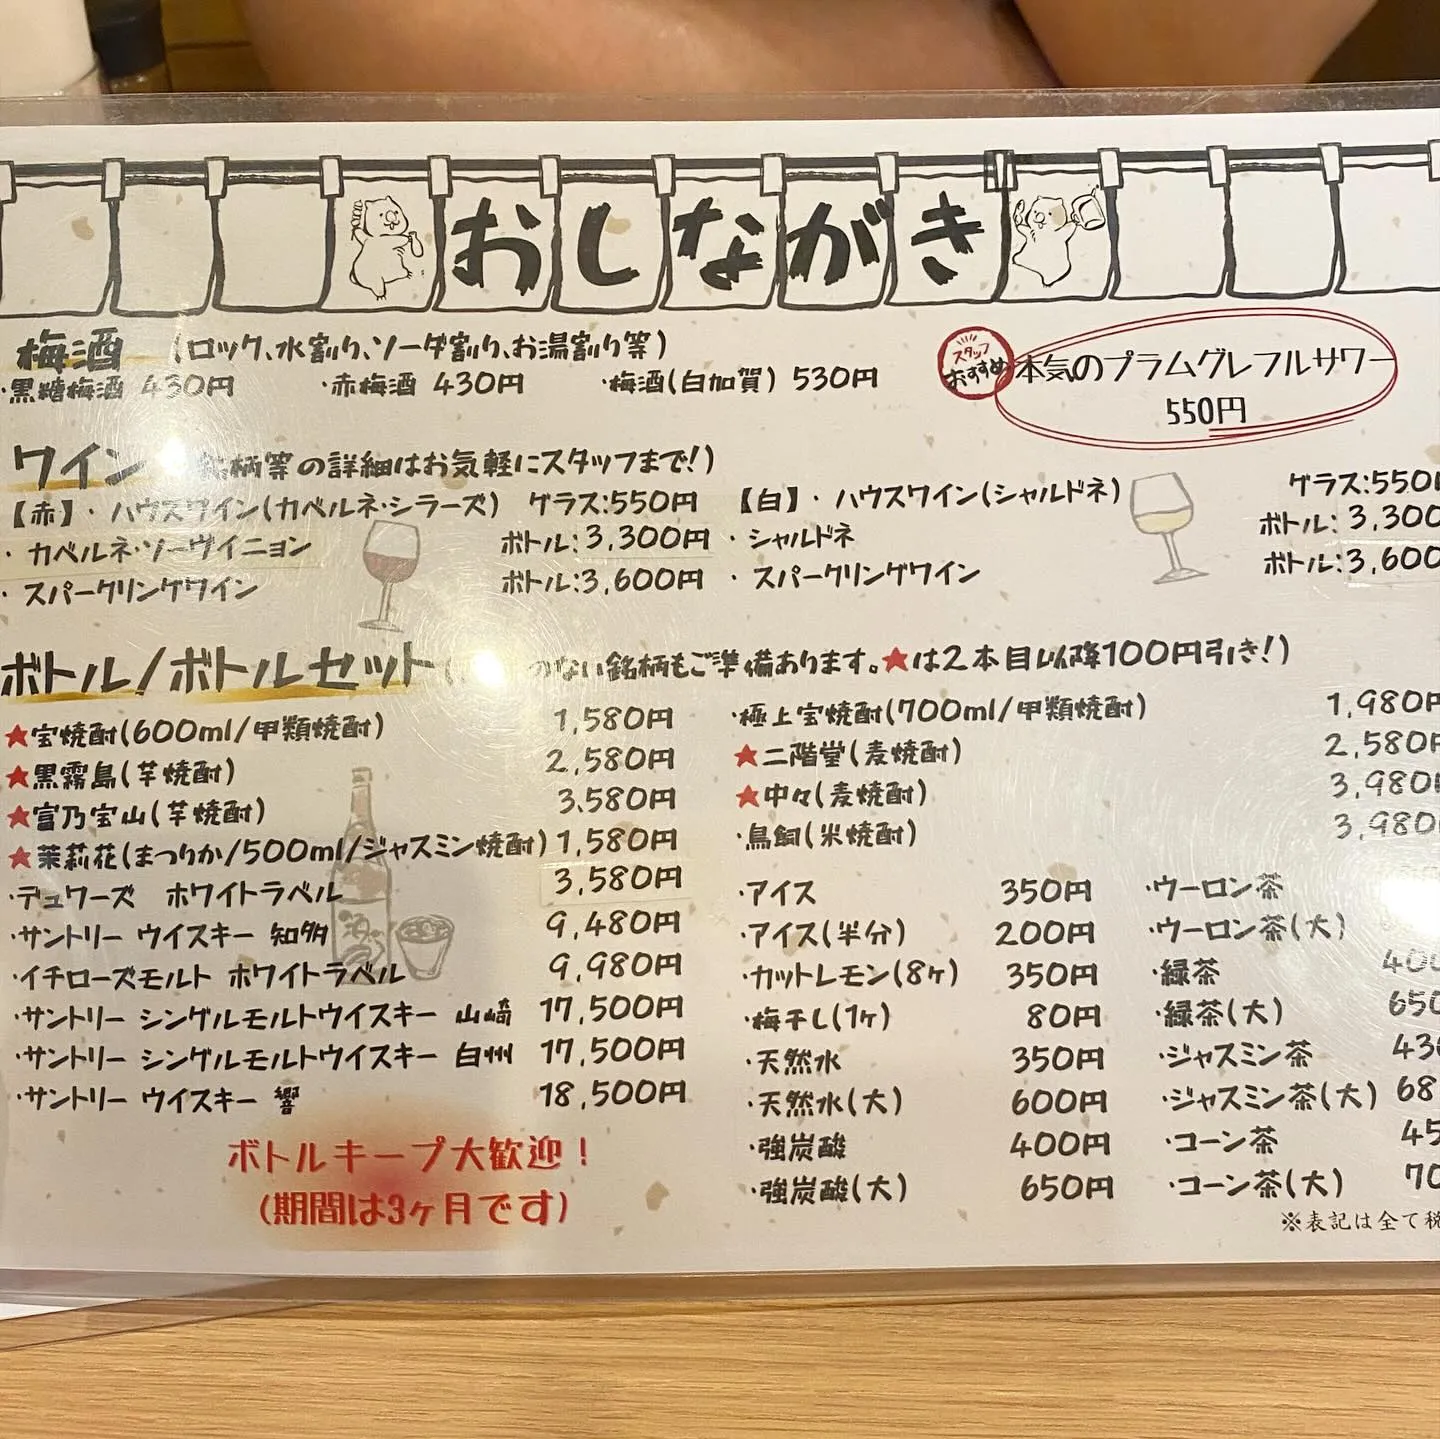 おしながき
梅酒 (ロック、水割り、ソーダ割り、お湯割り等)
・黒糖梅酒 430円 ・赤梅酒 430円 ・梅酒(白加賀) 530円
スタッフ
おすすめ
本気のプラムグレフルサワー
550円
ワイン 銘柄等の詳細はお気軽にスタッフまで!)
【赤】・ハウスワイン(カベルネ・シラーズ) グラス:550円
・カベルネ・ソーヴィニヨン ボトル:3,300円
・スパークリングワイン ボトル:3,600円
【白】・ハウスワイン(シャルドネ) グラス:550
・シャルドネ ボトル:3,300
・スパークリングワイン ボトル:3,600
ボトル/ボトルセット のない銘柄もご準備あります。★は2本目以降100円引き!)
★宝焼酎(600ml/甲類焼酎) 1,580円
★黒霧島(芋焼酎) 2,580円
★富乃宝山(芋焼酎) 3,580円
★茉莉花(まつりか/500ml/ジャスミン焼酎) 1,580円
・デュワーズ ホワイトラベル 3,580円
・サントリー ウイスキー 知多 9,480円
・イチローズモルト ホワイトラベル 9,980円
・サントリー シングルモルトウイスキー 山崎 17,500円
・サントリー シングルモルトウイスキー 白州 17,500円
・サントリー ウイスキー 響 18,500円
ボトルキープ大歓迎!
(期間は3ヶ月です)
・極上宝焼酎(700ml/甲類焼酎) 1,980円
★二階堂(麦焼酎) 2,580円
★中々(麦焼酎) 3,980
・鳥飼(米焼酎) 3,980
・アイス 350円
・アイス(半分) 200円
・カットレモン(8ヶ) 350円
・梅干し(1ヶ) 80円
・天然水 350円
・天然水(大) 600円
・強炭酸 400円
・強炭酸(大) 650円
・ウーロン茶
・ウーロン茶(大)
・緑茶 400
・緑茶(大) 650
・ジャスミン茶 430
・ジャスミン茶(大) 68
・コーン茶 45
・コーン茶(大) 70
※表記は全て税